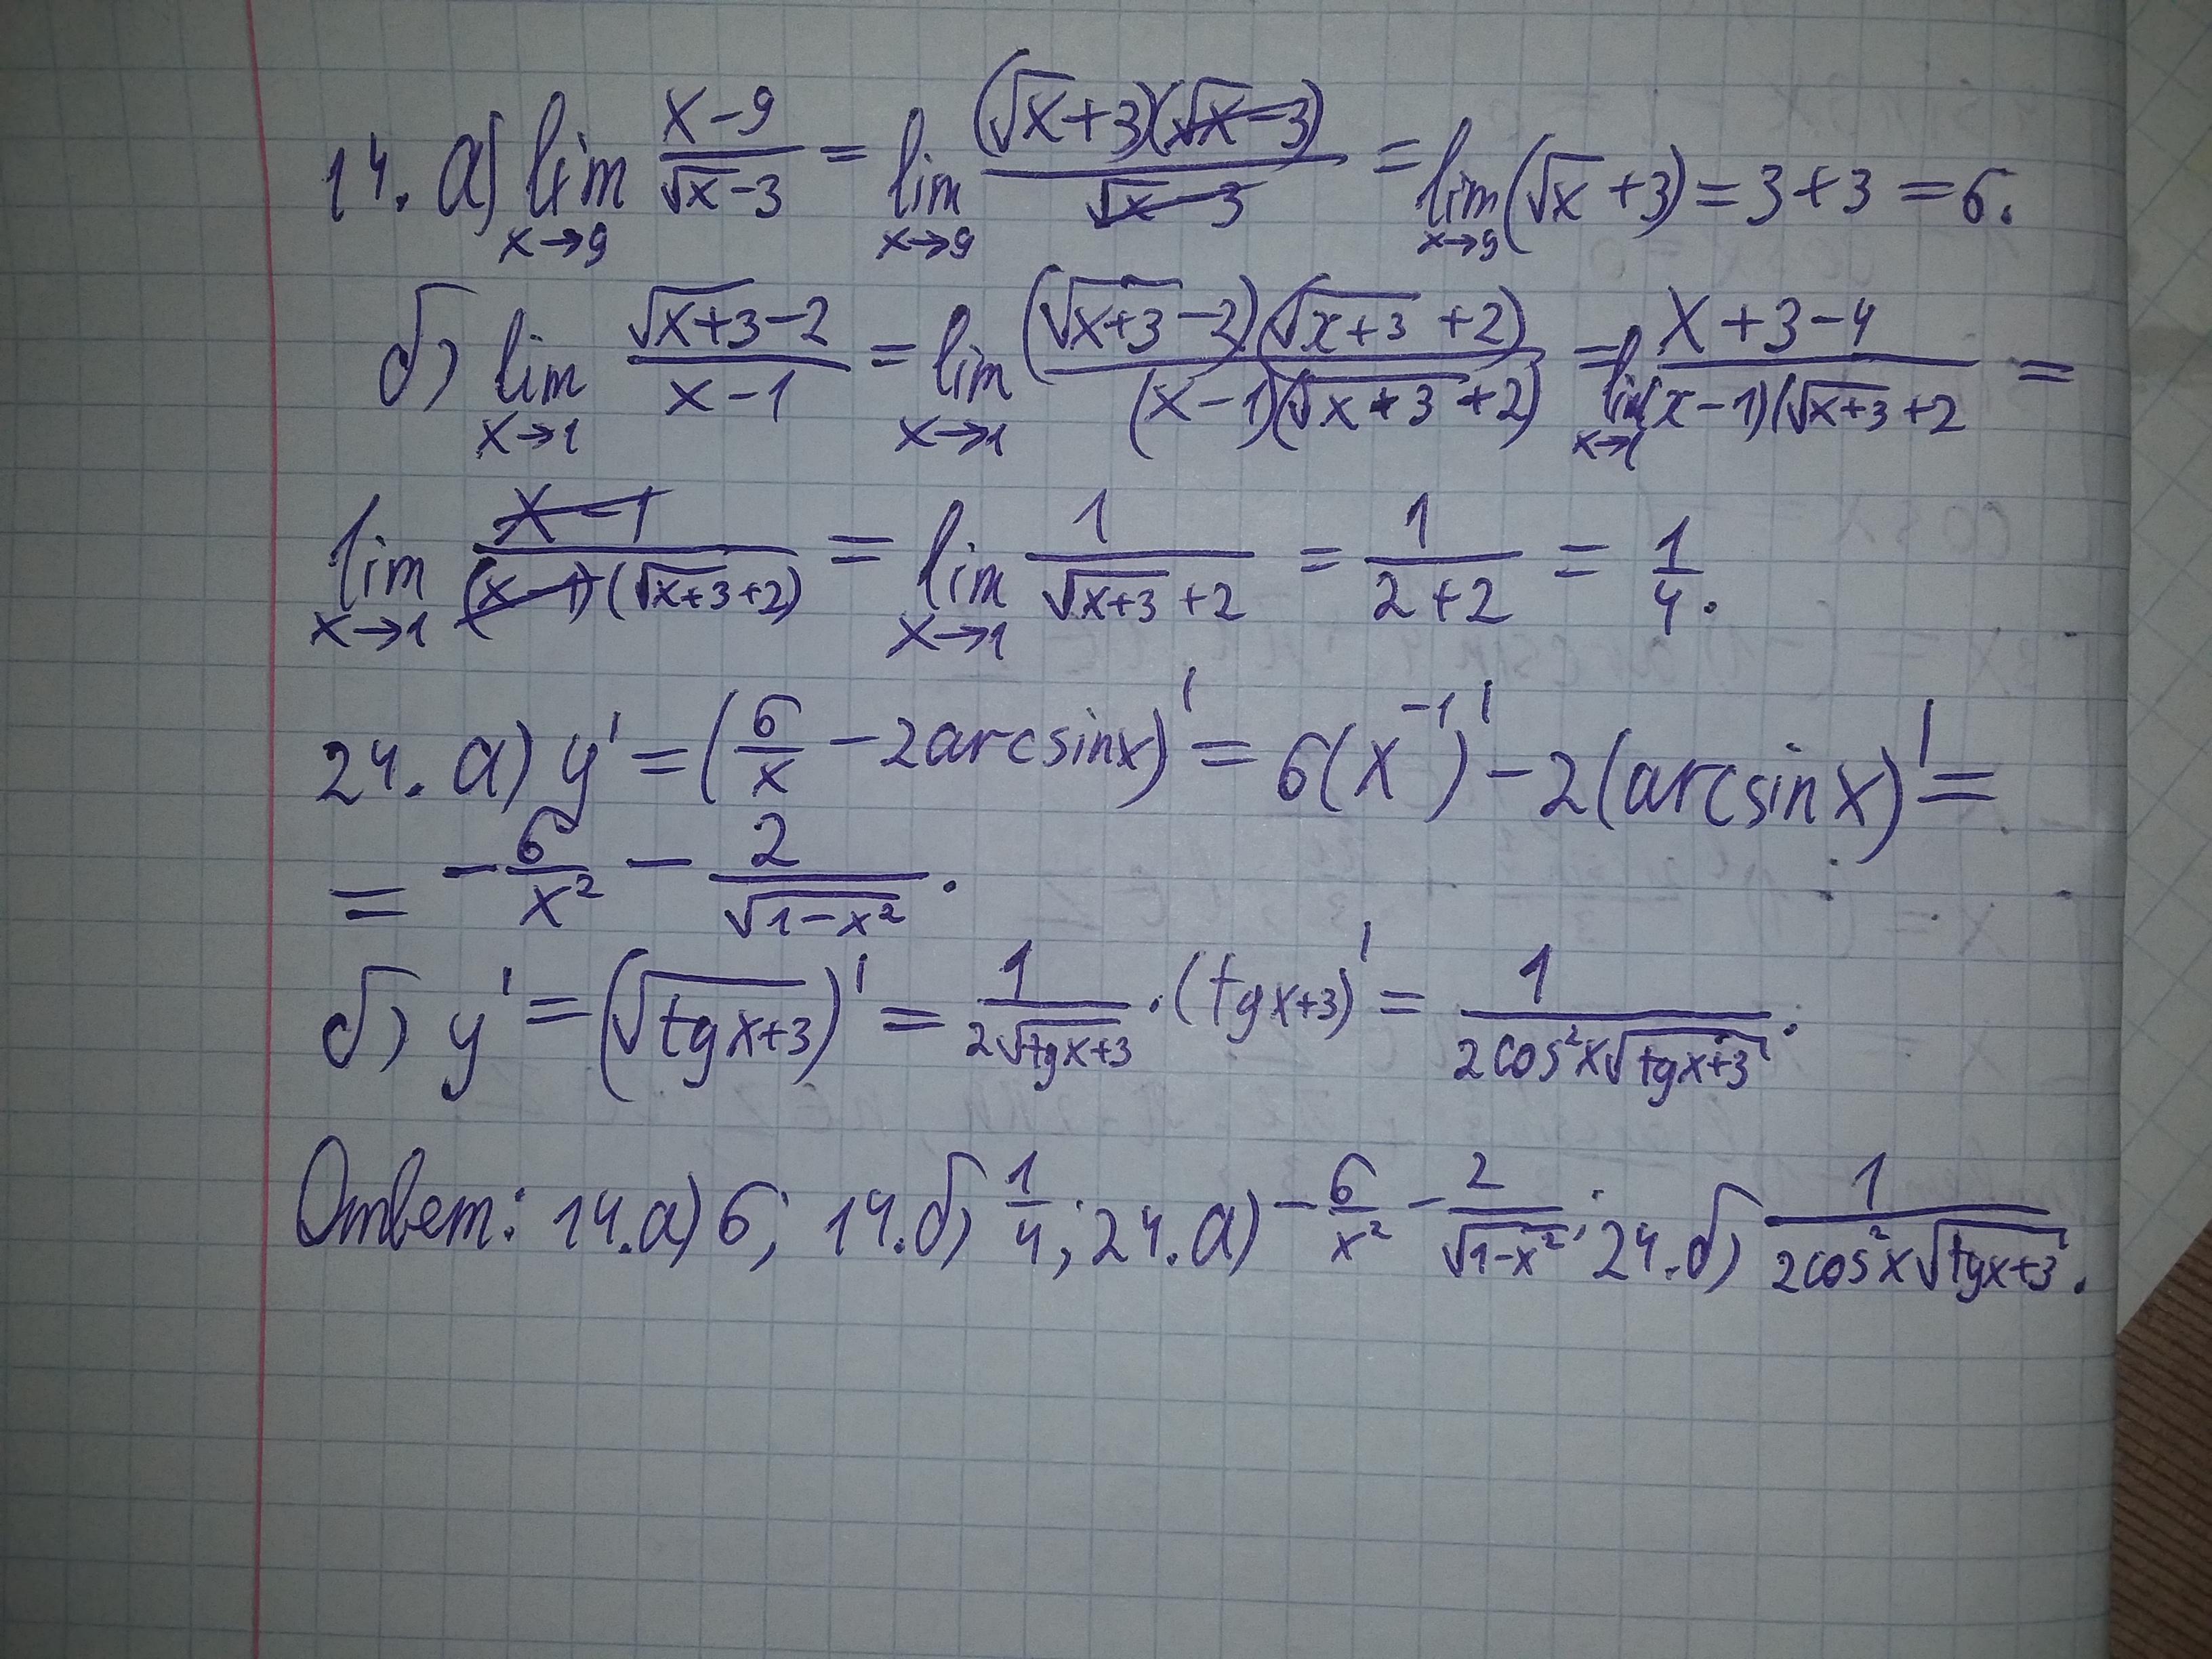 14. а) lim_{x→9} (x-9)/(√x-3) = lim_{x→9} ((√x+3)(√x-3))/(√x-3) = lim_{x→9} (√x+3) = 3+3 = 6.
б) lim_{x→1} (√(x+3)-2)/(x-1) = lim_{x→1} ((√(x+3)-2)(√(x+3)+2))/((x-1)(√(x+3)+2)) = lim_{x→1} (x+3-4)/((x-1)(√(x+3)+2 =
lim_{x→1} (x-1)/((x-1)(√(x+3)+2)) = lim_{x→1} 1/(√(x+3)+2) = 1/(2+2) = 1/4.
24. а) y' = (6/x - 2arcsinx)' = 6(x^{-1})' - 2(arcsinx)' =
= -6/x² - 2/√(1-x²).
б) y' = (√(tgx+3))' = 1/(2√(tgx+3)) · (tgx+3)' = 1/(2cos²x√(tgx+3)).
Ответ: 14.а) 6; 14.б) 1/4; 24.а) -6/x² - 2/√(1-x²); 24.б) 1/(2cos²x√(tgx+3)).